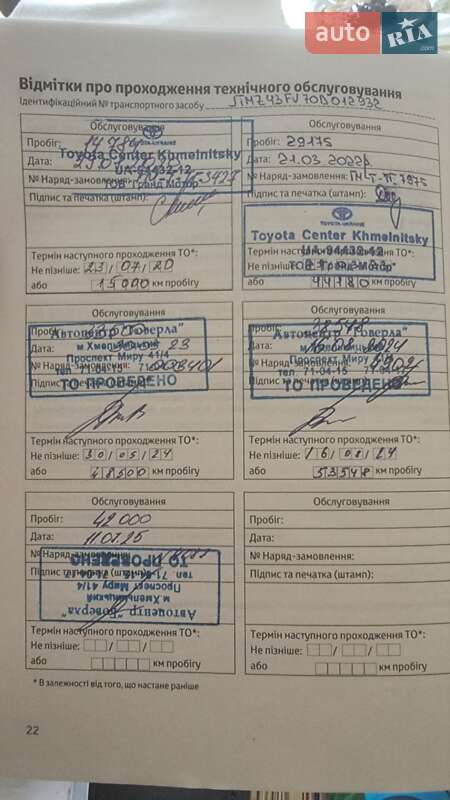 auto RIA.com
Відмітки про проходження технічного обслуговування
Ідентифікаційний № транспортного засобу
Обслуговування
Пробіг:
Дата:
№ Наряд-замовлення:
Підпис та печатка (штамп):
TOYOTA-UKRAINE
Toyota Center Khmelnitsky
UA-94432-12
ТОВ "Гранд Мотор"
Термін наступного проходження ТО*:
Не пізніше: 23/07/20
або 15000 км пробігу
Обслуговування
Пробіг: 29175
Дата: 21.03.2022
№ Наряд-замовлення:
Підпис та печатка (штамп):
TOYOTA-UKRAINE
Toyota Center Khmelnitsky
UA-94432-12
ТОВ "Гранд Мотор"
Термін наступного проходження ТО*:
Не пізніше:
або 44180 км пробігу
Обслуговування
Пробіг:
Дата: 23
№ Наряд-замовлення:
Підпис та печатка (штамп):
Автоцентр "Говерла"
м Хмельницький
Проспект Миру 41/4
тел. 71-04-15
ТО ПРОВЕДЕНО
Термін наступного проходження ТО*:
Не пізніше: 30/05/24
або 48500 км пробігу
Обслуговування
Пробіг: 38548
Дата:
№ Наряд-замовлення:
Підпис та печатка (штамп):
Автоцентр "Говерла"
м Хмельницький
Проспект Миру
тел. 71-04-15
ТО ПРОВЕДЕНО
Термін наступного проходження ТО*:
Не пізніше: 16/08/24
або 53548 км пробігу
Обслуговування
Пробіг: 42000
Дата: 11.07.25
№ Наряд-замовлення:
Підпис та печатка (штамп):
Автоцентр "Говерла"
м Хмельницький
Проспект Миру 41/4
ТО ПРОВЕДЕНО
Термін наступного проходження ТО*:
Не пізніше:
або км пробігу
Обслуговування
Пробіг:
Дата:
№ Наряд-замовлення:
Підпис та печатка (штамп):
Термін наступного проходження ТО*:
Не пізніше:
або км пробігу
* В залежності від того, що настане раніше
22